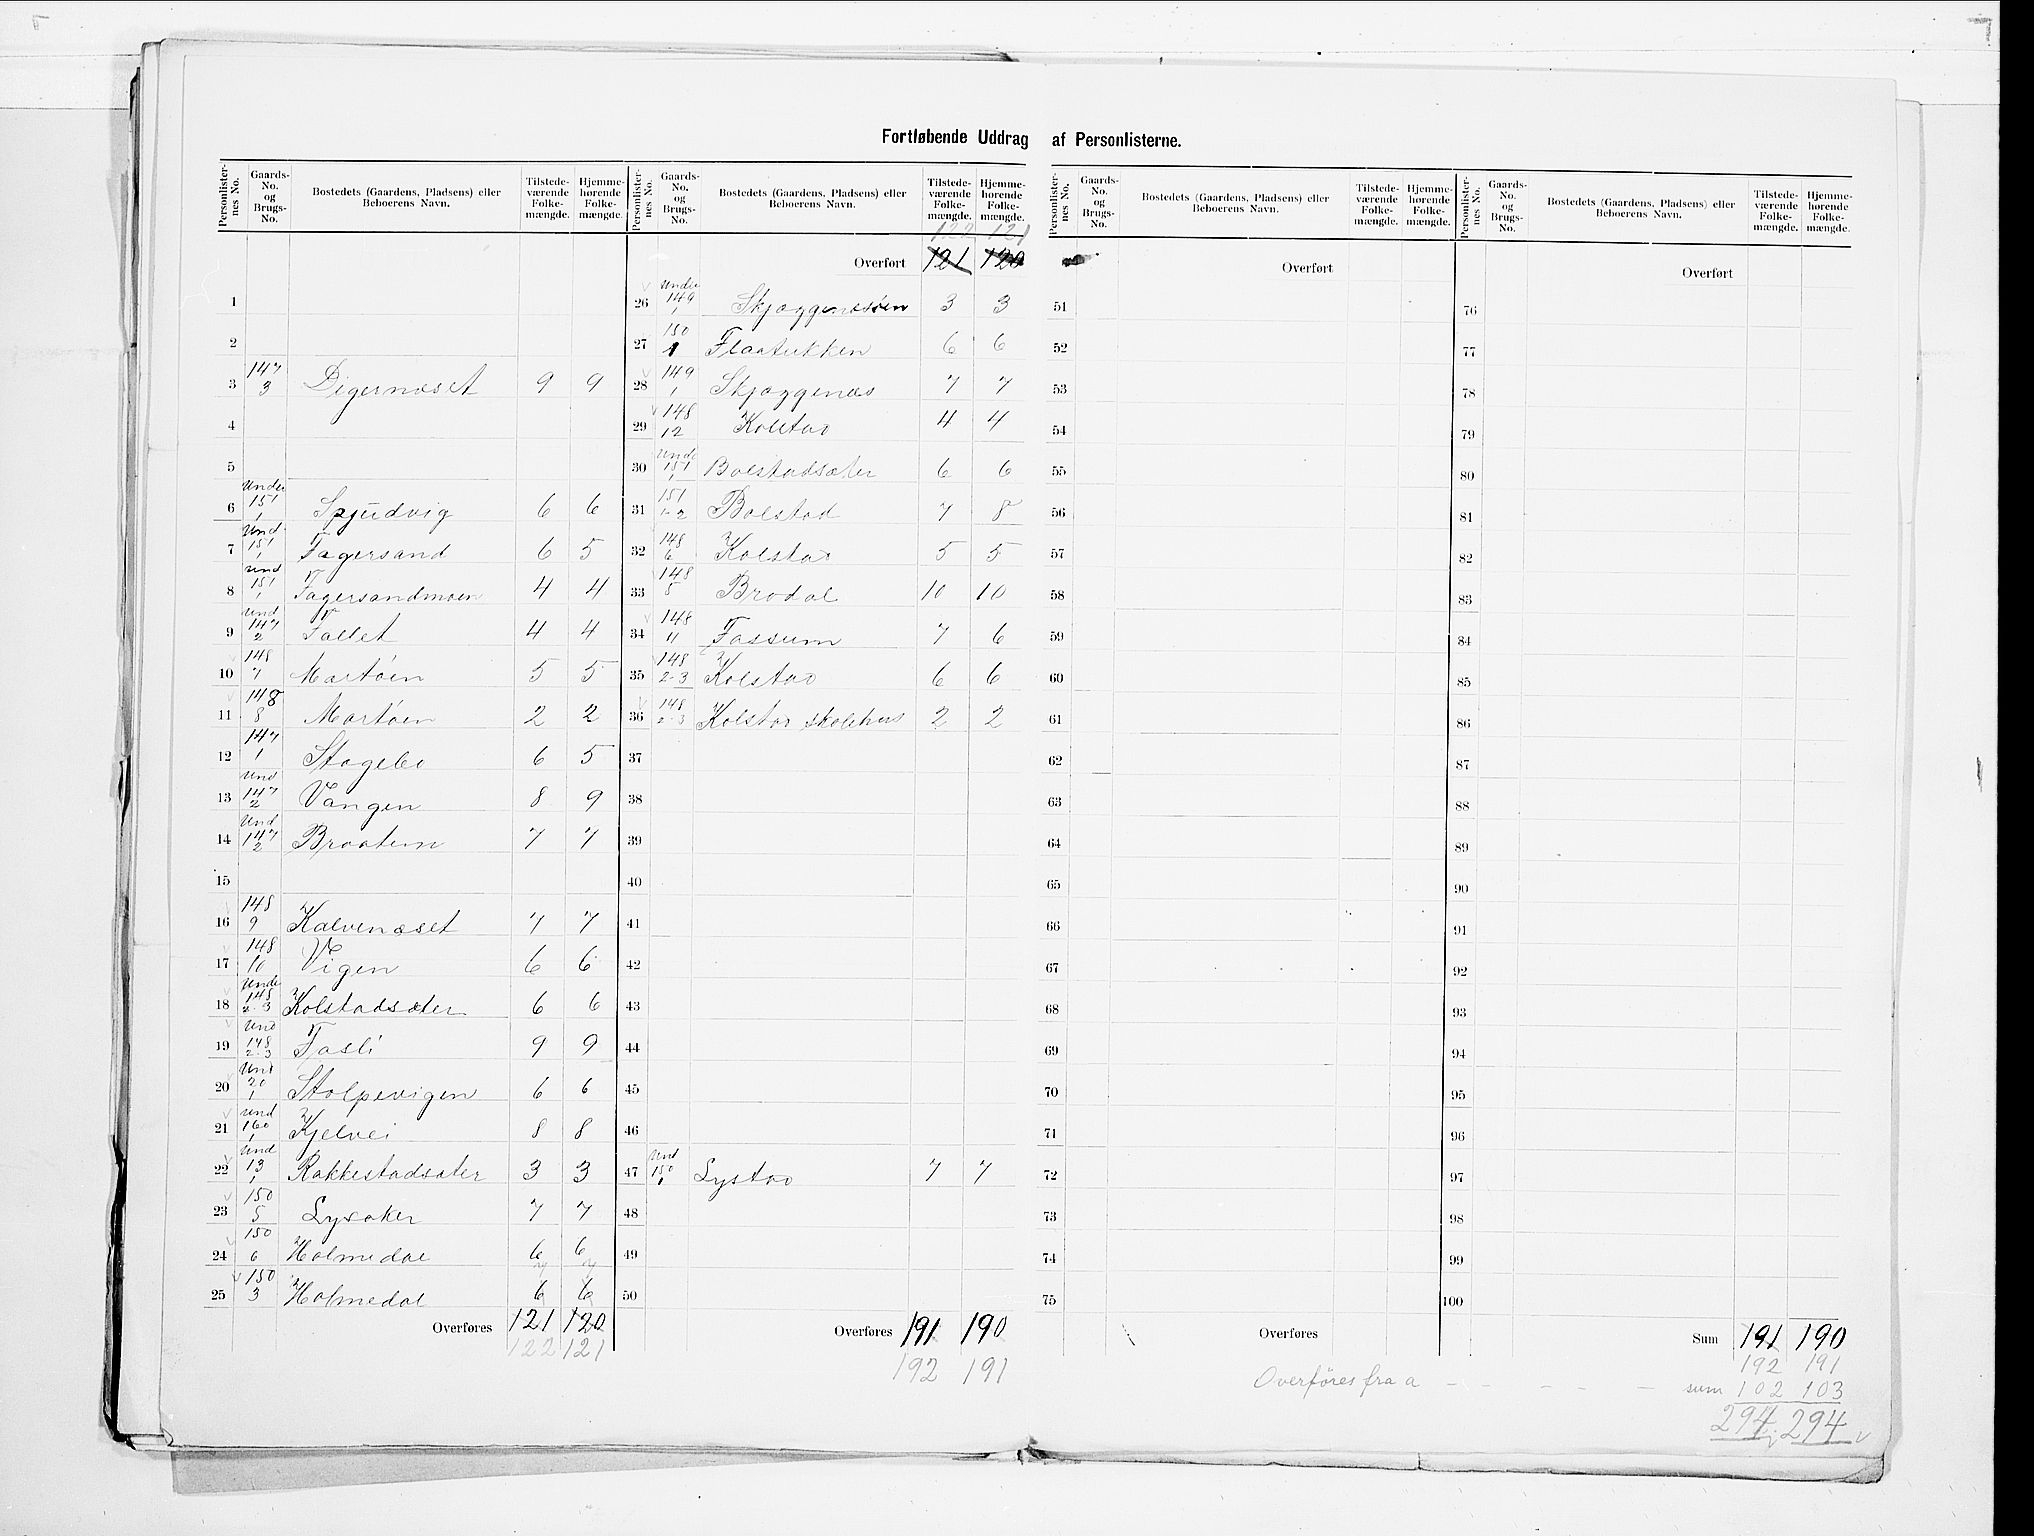 Fortløbende Uddrag af Personlisterne.
Personlister-nes No. | Gaards-No. og Brugs-No. | Bostedets (Gaardens, Pladsens) eller Beboerens Navn. | Tilstede-værende Folke-mængde. | Hjemme-hørende Folke-mængde.
1
2
3 147/3 Digernæset 9 9
4
5
6 Under 151/1 Spjudvig 6 6
7 Und. 151/1 Fagersand 6 5
8 Und 151/1 Fagersandmoen 4 4
9 Und 147/2 Fallet 4 4
10 148/7 Martøen 5 5
11 148/8 Martøen 2 2
12 147/1 Stagebo 6 5
13 Und 147/2 Vangen 8 9
14 Und 147/2 Braaten 7 7
15
16 148/9 Kalvenæset 7 7
17 148/10 Vigen 6 6
18 Unde 148/2-3 Kolstadsæter 6 6
19 Und 148/2-3 Fasli 9 9
20 Und 20/1 Stolpevigen 6 6
21 Und 160/1 Kjelvei 8 8
22 Und 13/1 Rakkestadsæter 3 3
23 150/5 Lysaker 7 7
24 150/6 Holmedal 6 6
25 150/3 Holmedal 6 6
7 7
Overføres 121 120
122 121
Personlister-nes No. | Gaards-No. og Brugs-No. | Bostedets (Gaardens, Pladsens) eller Beboerens Navn. | Tilstede-værende Folke-mængde. | Hjemme-hørende Folke-mængde.
122 121
Overført 121 120
26 Under 149/1 Skjæggenæsøen 3 3
27 150/1 Flaatukken 6 6
28 149/1 Skjæggenæs 7 7
29 148/12 Kolstad 4 4
30 Und 151/1 Bolstadsæter 6 6
31 151/1-2 Bolstad 7 8
32 148/6 Kolstad 5 5
33 148/5 Brodal 10 10
34 148/11 Fossum 7 6
35 148/2-3 Kolstad 6 6
36 148/2-3 Kolstad skolehus 2 2
37
38
39
40
41
42
43
44
45
46
47 Und 150/1 Lystad 7 7
48
49
50
Overføres 191 190
192 191
Personlister-nes No. | Gaards-No. og Brugs-No. | Bostedets (Gaardens, Pladsens) eller Beboerens Navn. | Tilstede-værende Folke-mængde. | Hjemme-hørende Folke-mængde.
Overført
51
52
53
54
55
56
57
58
59
60
61
62
63
64
65
66
67
68
69
70
71
72
73
74
75
Overføres
Personlister-nes No. | Gaards-No. og Brugs-No. | Bostedets (Gaardens, Pladsens) eller Beboerens Navn. | Tilstede-værende Folke-mængde. | Hjemme-hørende Folke-mængde.
Overført
76
77
78
79
80
81
82
83
84
85
86
87
88
89
90
91
92
93
94
95
96
97
98
99
100
Sum 191 190
192 191
Overføres fra a - - - - - sum 102 103
294 294